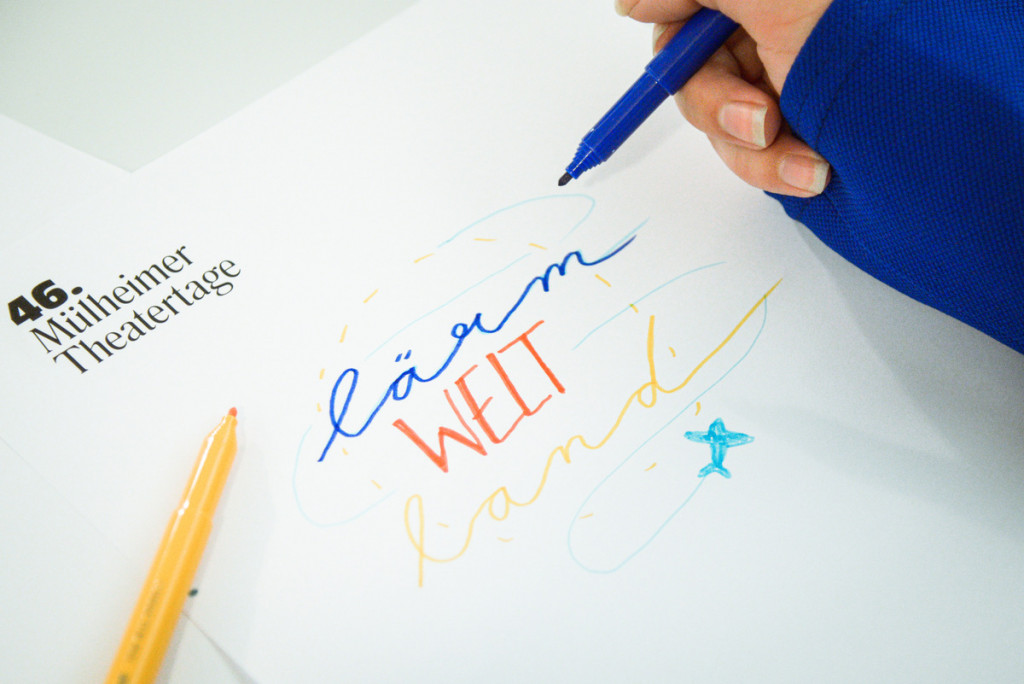 46.
Mülheimer
Theatertage
lärm
WELT
land